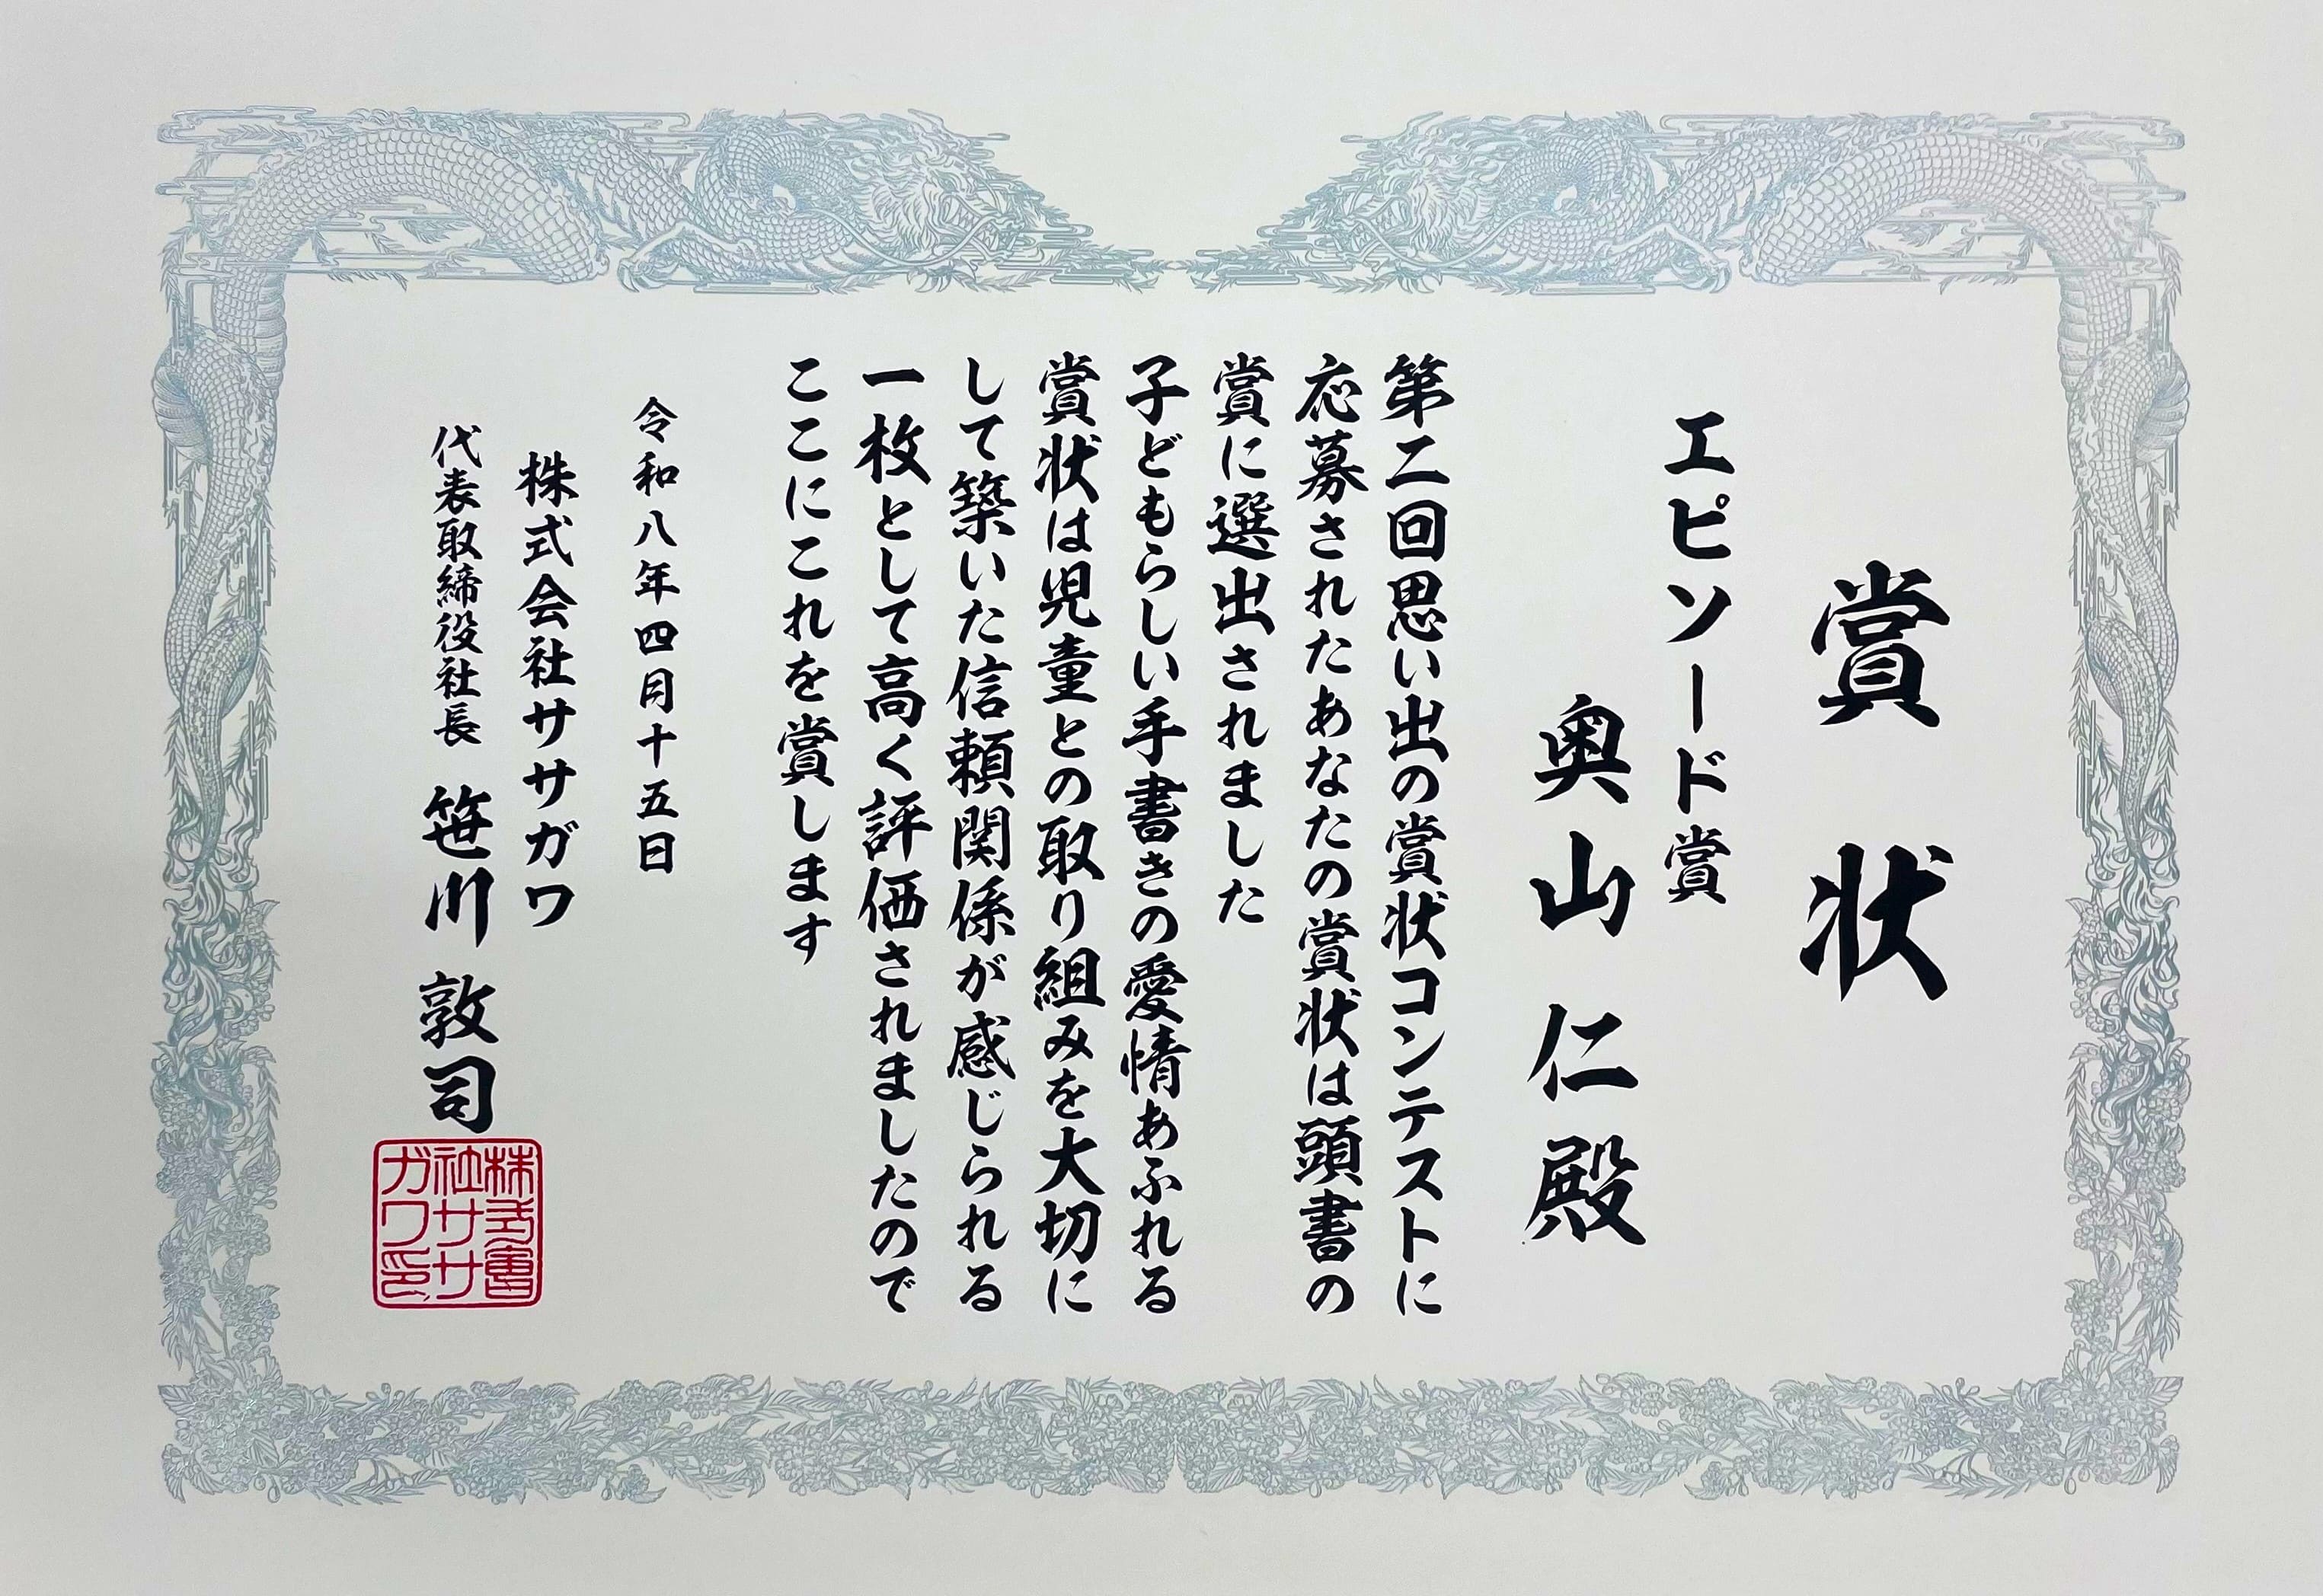 賞状
エピソード賞
奥山仁殿
第二回思い出の賞状コンテストに
応募されたあなたの賞状は頭書の
賞に選出されました
子どもらしい手書きの愛情あふれる
賞状は児童との取り組みを大切に
して築いた信頼関係が感じられる
一枚として高く評価されましたので
ここにこれを賞します
令和八年四月十五日
株式会社ササガワ
代表取締役社長 笹川敦司
株式會
社ササ
ガワ印